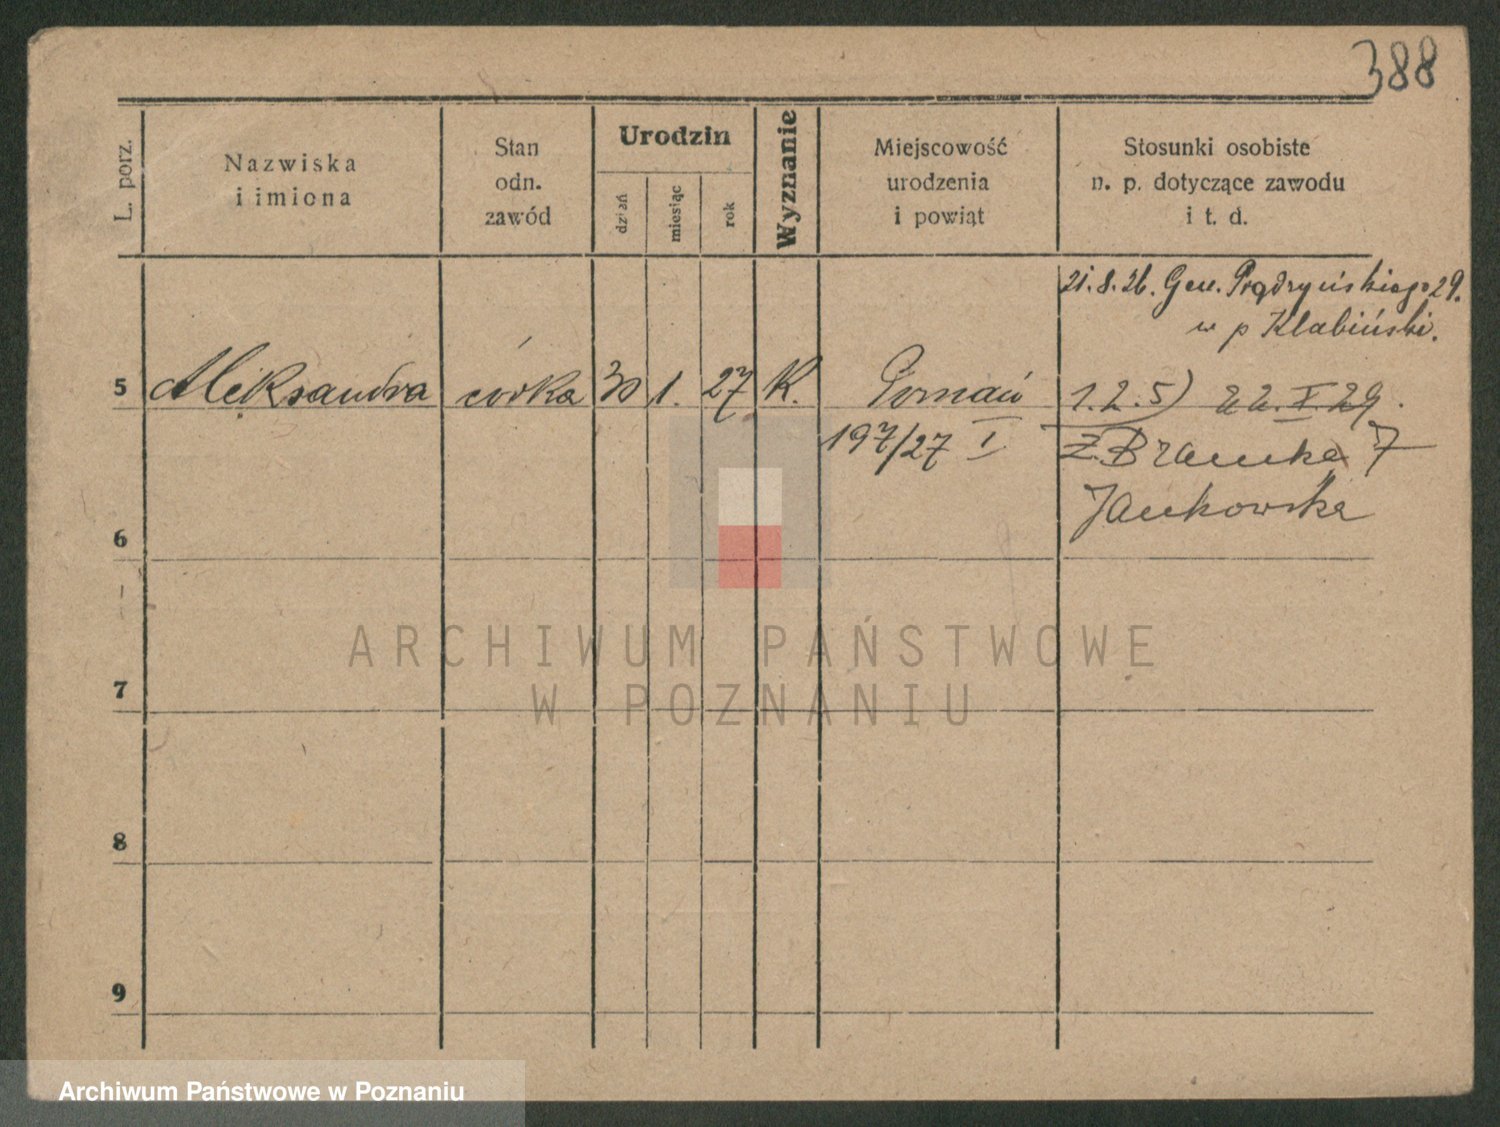 388
L. porz.
Nazwiska
i imiona
Stan
odn.
zawód
Urodzin
dzień
miesiąc
rok
Wyznanie
Miejscowość
urodzenia
i powiąt
Stosunki osobiste
n. p. dotyczące zawodu
i t. d.
21.8.26. Gen. Prądzyńskiego 29.
w p Klabiński.
5 Aleksandra córka 30 1. 27 K. Poznań 1.2.5) 22.X.29.
197/27 I Z. Bramka 7
Jankowska
6
7
8
9
ARCHIWUM PAŃSTWOWE
W POZNANIU
Archiwum Państwowe w Poznaniu